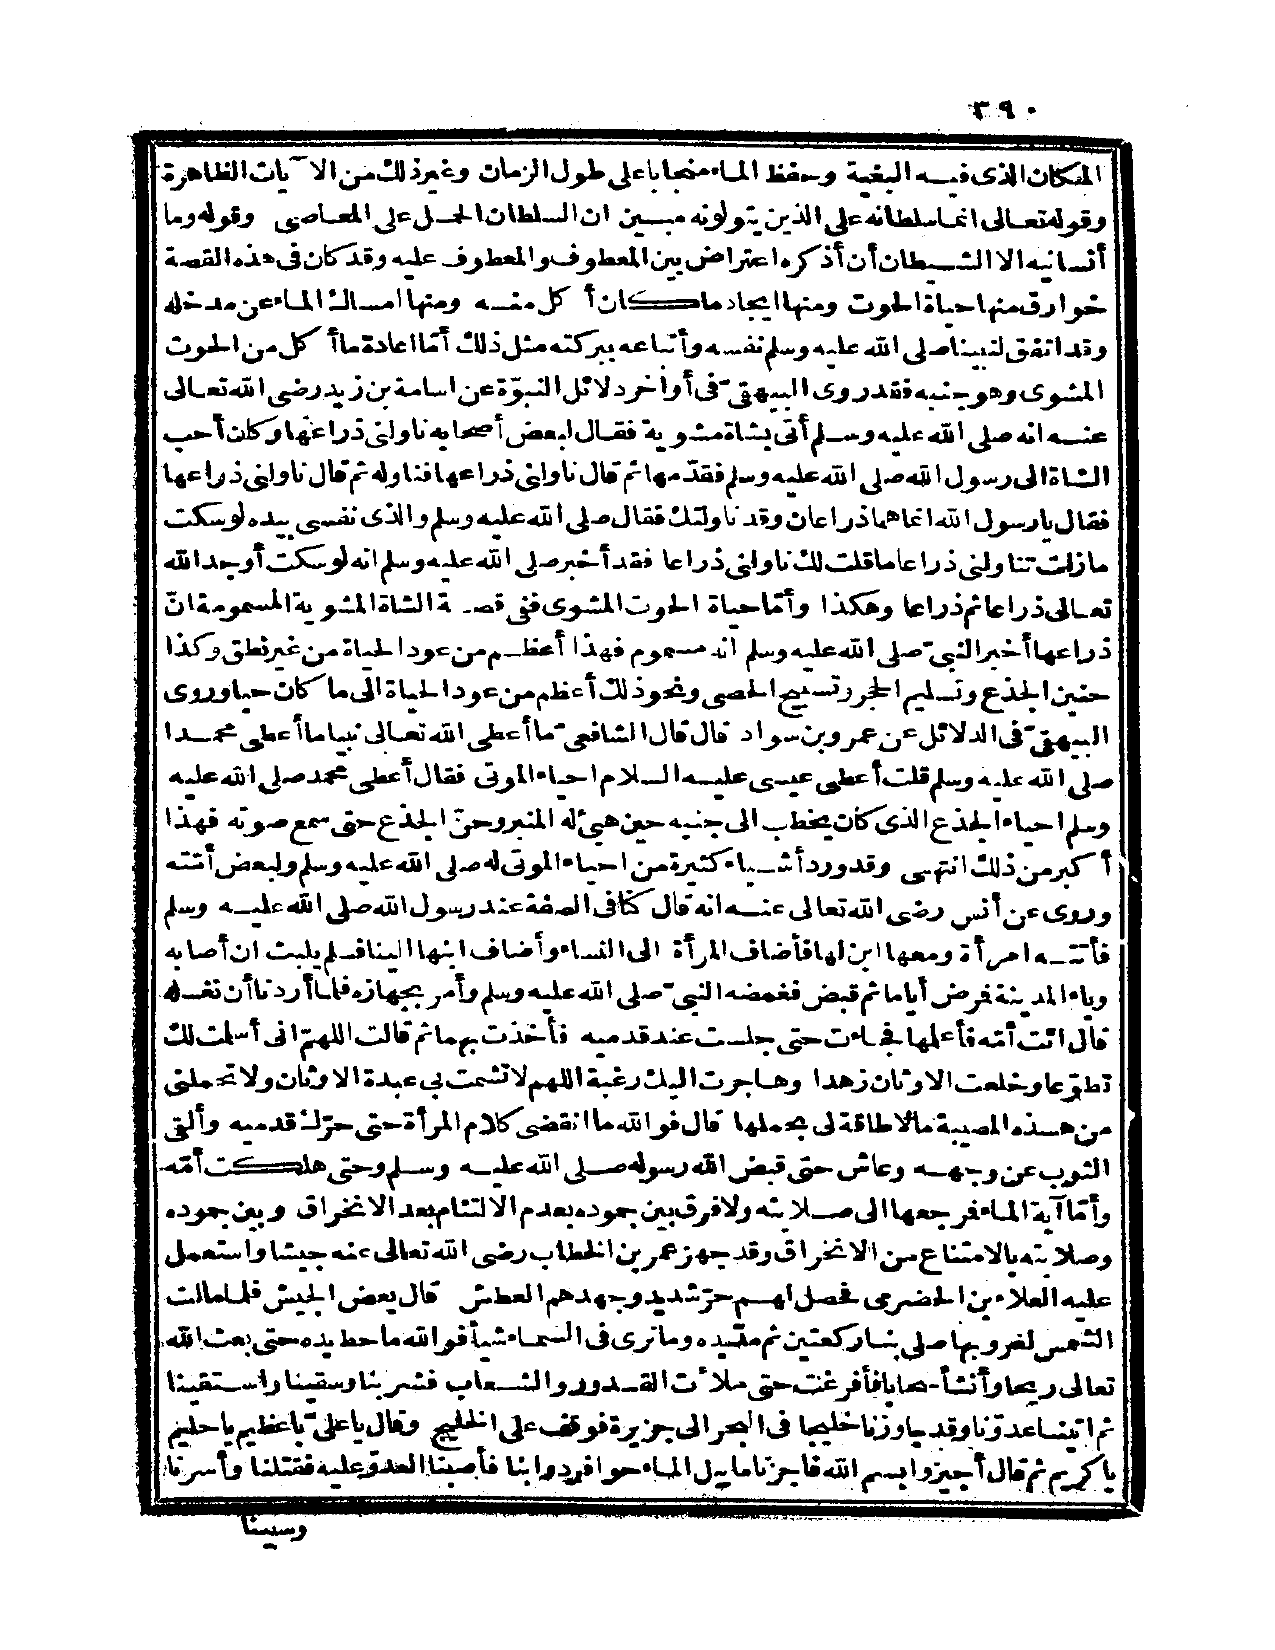 ٣٩٠
المكان الذى فيه البغية وحفظ الماء منجابا على طول الزمان وغير ذلك من الآيات الظاهرة
وقوله تعالى انما سلطانه على الذين يتولونه مبين ان السلطان الحمل على المعاصى وقوله وما
أنسانيه الا الشيطان أن أذكره اعتراض بين المعطوف والمعطوف عليه وقد كان فى هذه القصة
خوارق منها حياة الحوت ومنها ايجاد ما كان أكل منه ومنها امساك الماء عن مدخله
وقد اتفق لنبينا صلى الله عليه وسلم نفسه وأتباعه ببركته مثل ذلك أمّا اعادة ما أكل من الحوت
المشوى وهو جنبه فقد روى البيهقىّ فى أواخر دلائل النبوّة عن اسامة بن زيد رضى الله تعالى
عنه انه صلى الله عليه وسلم أتى بشاة مشوية فقال لبعض أصحابه ناولنى ذراعها وكان أحب
الشاة الى رسول الله صلى الله عليه وسلم فقدّمها ثم قال ناولنى ذراعها فناوله ثم قال ناولنى ذراعها
فقال يا رسول الله انما هما ذراعان وقد ناولتك فقال صلى الله عليه وسلم والذى نفسى بيده لو سكت
ما زلت تناولنى ذراعا ما قلت لك ناولنى ذراعا فقد أخبر صلى الله عليه وسلم انه لو سكت أوجد الله
تعالى ذراعا ثم ذراعا وهكذا وأمّا حياة الحوت المشوى ففى قصة الشاة المشوية المسمومة انّ
ذراعها أخبر النبىّ صلى الله عليه وسلم انه مسموم فهذا أعظم من عود الحياة من غير نطق وكذا
حنين الجذع وتسليم الحجر وتسبيح الحصى ونحو ذلك أعظم من عود الحياة الى ما كان حيا وروى
البيهقىّ فى الدلائل عن عمرو بن سواد قال قال الشافعىّ ما أعطى الله تعالى نبيا ما أعطى محمدا
صلى الله عليه وسلم قلت أعطى عيسى عليه السلام احياء الموتى فقال أعطى محمد صلى الله عليه
وسلم احياء الجذع الذى كان يخطب الى جنبه حين هيئ له المنبر وحنّ الجذع حتى سمع صوته فهذا
أكبر من ذلك انتهى وقد ورد أشياء كثيرة من احياء الموتى له صلى الله عليه وسلم ولبعض أمّته
وروى عن أنس رضى الله تعالى عنه انه قال كنا فى الصفة عند رسول الله صلى الله عليه وسلم
فأتته امرأة ومعها ابن لها فأضاف المرأة الى النساء وأضاف ابنها الينا فلم يلبث ان أصابه
وباء المدينة فمرض أياما ثم قبض فغمضه النبىّ صلى الله عليه وسلم وأمر بجهازه فلما أردنا أن نغسله
قال ائت أمّه فأعلمها فجاءت حتى جلست عند قدميه فأخذت بهما ثم قالت اللهمّ انى أسلمت لك
تطوّعا وخلعت الاوثان زهدا وهاجرت اليك رغبة اللهم لا تشمت بى عبدة الاوثان ولا تحملنى
من هذه المصيبة مالا طاقة لى بحملها قال فوالله ما انقضى كلام المرأة حتى حرّك قدميه وألقى
الثوب عن وجهه وعاش حتى قبض الله رسوله صلى الله عليه وسلم وحتى هلكت أمّه
وأمّا آية الماء فمرجعها الى صلابته ولا فرق بين جموده بعدم الالتئام بعد الانخراق وبين جموده
وصلابته بالامتناع من الانخراق وقد جهز عمر بن الخطاب رضى الله تعالى عنه جيشا واستعمل
عليه العلاء بن الحضرمى فحصل لهم حرّ شديد وجهدهم العطش قال بعض الجيش فلما مالت
الشمس لغروبها صلى بنا ركعتين ثم مدّ يده وما نرى فى السماء شيأ فوالله ما حط يده حتى بعث الله
تعالى ريحا وأنشأ سحابا فأفرغت حتى ملأت الغدور والشعاب فشربنا وسقينا واستقينا
ثم أتينا عدوّنا وقد جاوزنا خليجا فى البحر الى جزيرة فوقف على الخليج وقال يا علىّ يا عظيم يا حليم
يا كريم ثم قال أجيزوا بسم الله فاجزنا ما يبل الماء حوافر دوابنا فأصبنا العدوّ عليه فقتلنا وأسرنا
وسبينا